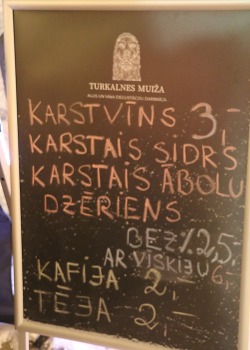 TURKALNES MUIŽA
KARSTVĪNS 3,-
KARSTAIS SIDRS
KARSTAIS ĀBOLU
DZĒRIENS
BEZ % 2,5,-
AR VISKIJU 6,-
KAFIJA 2,-
TĒJA 2,-